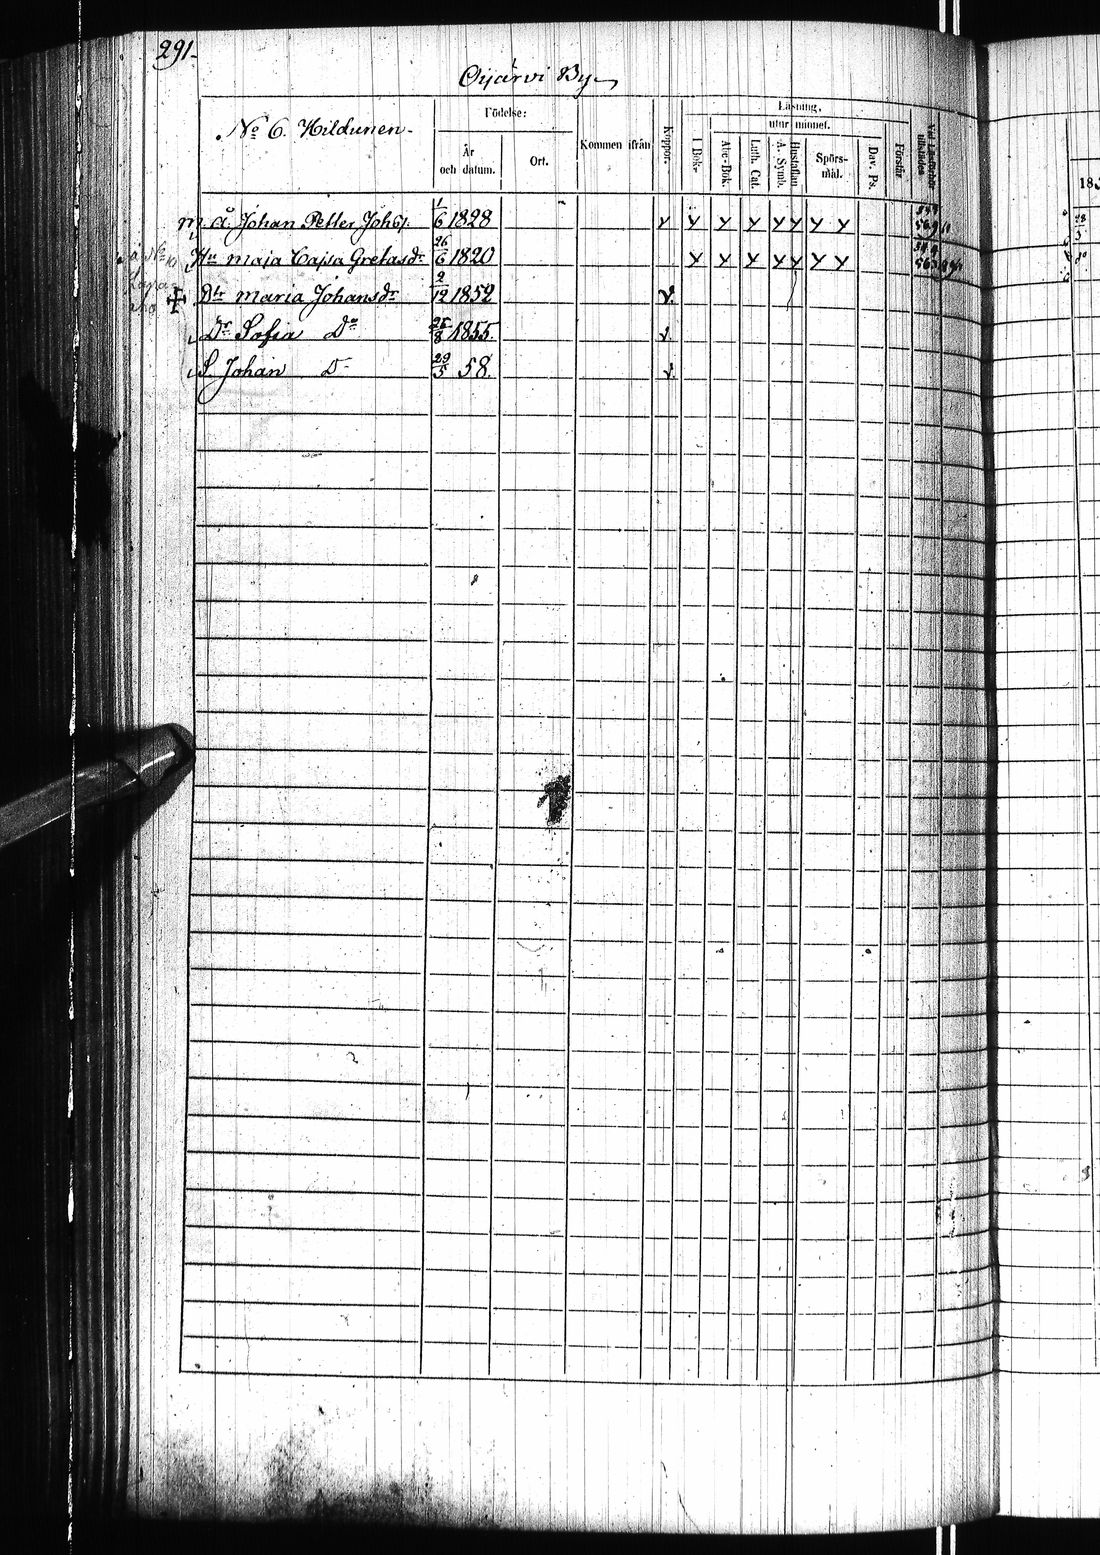 291.
Oijärvi By
No 6. Hildunen.
Födelse:
År och datum.
Ort.
Kommen ifrån
Koppor.
Läsning,
utur minnet.
I Bok.
Abc-Bok.
Luth. Cat.
A. Symb.
Hustaflan
Spörs-mål.
Dav. Ps.
Förstår
Vid Läsförhör tillstädes
185
Å. Johan Petter Johss. 1/6 1828 y y y y y y y y
Hu Maja Cajsa Gretasdr 26/6 1820 y y y y y y y
Dtr Maria Johansdr 2/12 1852 v.
Dr Sofia Do 25/8 1855. v
S. Johan D 29/5 58. v.